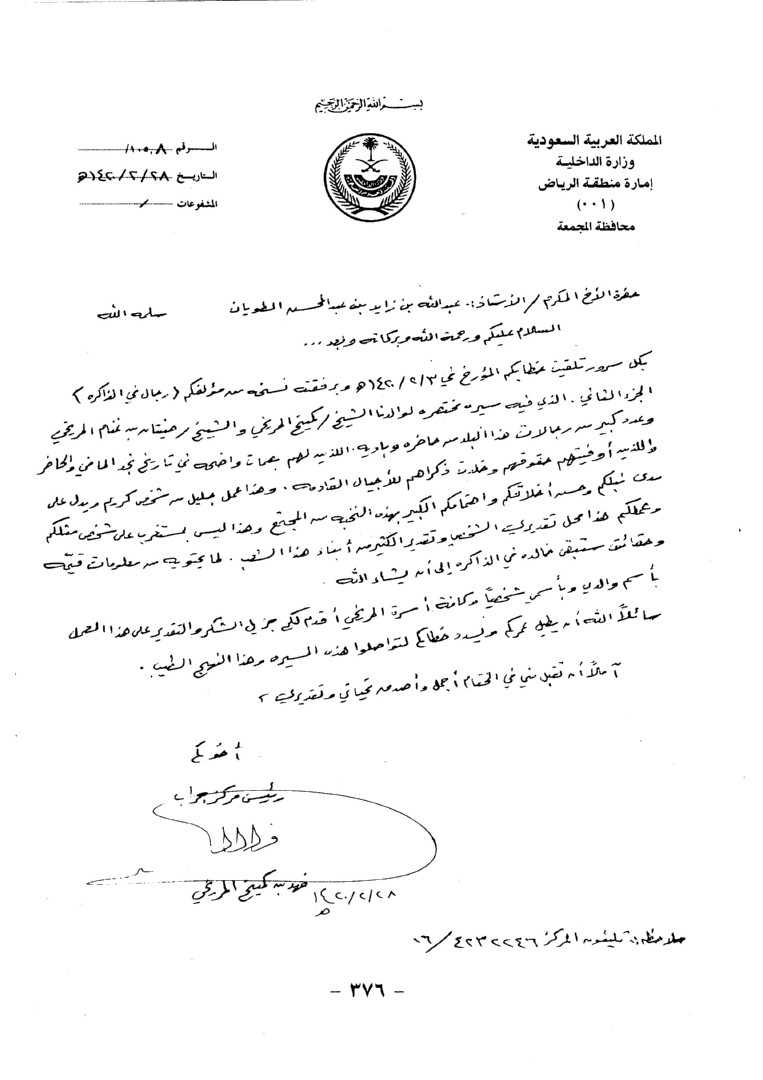 بسم الله الرحمن الرحيم
المملكة العربية السعودية
وزارة الداخلية
إمارة منطقة الرياض
(٠٠١)
محافظة المجمعة
الـرقم ١٠٥٠٨/
التاريخ ١٤٢٠/٢/٢٨هـ
المشفوعات /
حضرة الأخ المكرم / الأستاذ :. عبدالله بن زايد بن عبدالمحسن الطويان سلمه الله
السلام عليكم ورحمة الله وبركاته وبعد ...
بكل سرور تلقيت خطابكم المؤرخ في ١٤٢٠/٢/٣هـ وبرفقته نسخه من مؤلفكم ( رجال في الذاكره )
الجزء الثاني . الذي فيه سيره مختصره لوالدنا الشيخ / كميخ المريخي والشيخ / حنيتان بن غنام المريخي
وعدد كبير من رجالات هذا البلد من حاضره وباديه . اللذين لهم بصمات واضحه في تاريخ نجد الماضي والحاضر
واللذين أوفيتهم حقوقهم وخلدت ذكراهم للأجيال القادمه . وهذا عمل جليل من شخص كريم ويدل على
مدى نبلكم وحسن أخلاقكم واهتمامكم الكبير بهذه النخبه من المجتمع وهذا ليس بمستغرب على شخص مثلكم
وعملكم هذا محل تقديري الشخصي وتقدير الكثير من أبناء هذا الشعب . لما يحتويه من معلومات قيمه
وحقائق ستبقى خالده في الذاكره إلى أن يشاء الله .
بأسم والدي وبأسمي شخصياً وكافة أسرة المريخي أقدم لكم جزيل الشكر والتقدير على هذا العمل
سائلاً الله أن يطيل عمركم ويسدد خطاكم لتواصلوا هذه المسيره وهذا النهج الطيب .
آملاً أن تقبل مني في الختام أجمل وأصدق تحياتي وتقديري ،
أخوكم
رئيس مركز جراب
فهد بن كميخ المريخي
١٤٢٠/٢/٢٨هـ
ملاحظه :. تليفون المركز ٤٢٣٢٢٤٦ / ٠٦
- ٣٧٦ -